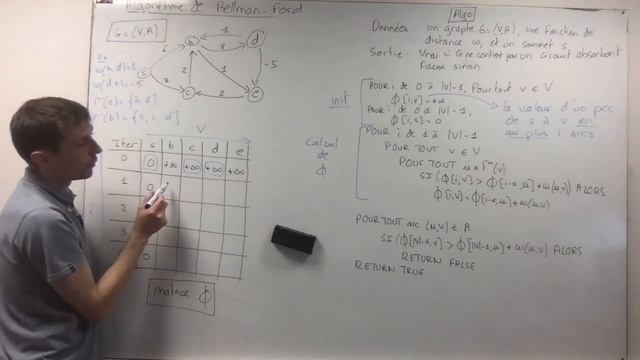 Algorithme de Bellman-Ford
G = (V, A)
s
b
c
d
e
6
2
2
1
8
1
2
-5
Ex
w(b,d)=8
w(d,e)=-5
Γ⁻(e) = {b, d}
Γ⁻(b) = {s, c, d}
V
Iter s b c d e
0 0 +∞ +∞ +∞ +∞
1 0
2
3
0
matrice ϕ
Algo
Données: un graphe G=(V,A), une fonction de
distance w, et un sommet s
Sortie: Vrai si G ne contient pas un circuit absorbant
Faux sinon
init
POUR i de 0 à |V|-1, Pour tout v ∈ V
ϕ[i,v] = +∞
POUR i de 0 à |V|-1
ϕ[i,s] = 0
la valeur d'un pcc
de s à v en
au plus i arcs
calcul
de
ϕ
POUR i de 1 à |V|-1
POUR TOUT v ∈ V
POUR TOUT u ∈ Γ⁻(v)
SI (ϕ[i,v] > ϕ[i-1,u] + w(u,v)) ALORS
ϕ[i,v] = ϕ[i-1,u] + w(u,v)
POUR TOUT arc (u,v) ∈ A
SI (ϕ[|V|-1,v] > ϕ[|V|-1,u] + w(u,v)) ALORS
RETURN FALSE
RETURN TRUE